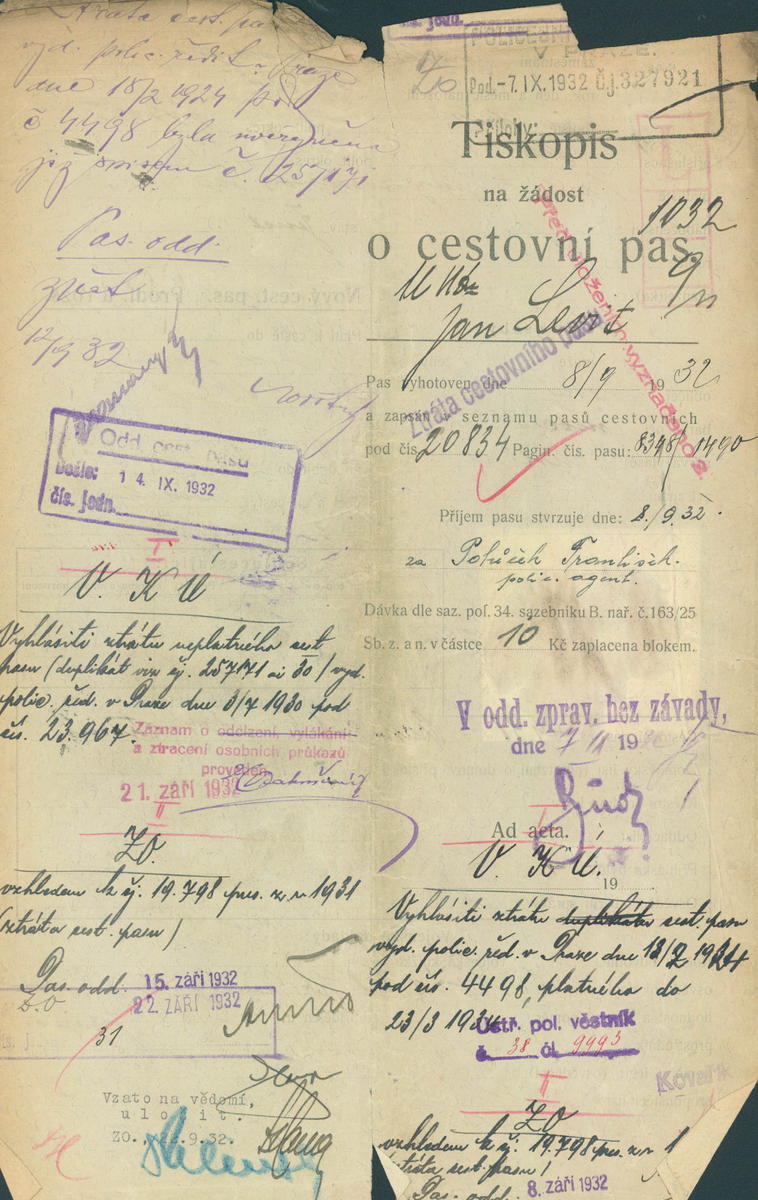 Ztráta cest. pasu
vyd. polic. ředit. v Praze
dne 18/2 1924 pod
č 4498 byla uveřejněna
již spisem č. 25/171
Pas. odd.
zpět
12/9 32
Odd. cest. pasu
Došlo: 14. IX. 1932
čís. jedn.
I
V. K Ú
Vyhlásiti ztrátu neplatného cest
pasu (duplikát viz čj. 257171 ai 30/ vyd.
polic. řed. v Praze dne 3/7 1930 pod
čís. 23.967.
Záznam o odcizení, vylákání
a ztracení osobních průkazů
proveden
21. září 1932
II
ZO.
vzhledem k čj. 19.798 pres. z r 1931
(ztráta cest. pasu)
Pas. odd. 15. září 1932
Z.O 22. ZÁŘÍ 1932
31
Vzato na vědomí,
uložit.
ZO., 22.9.32.
POLICEJNÍ
V PRAZE.
Pod. -7. IX. 1932 Č.j. 327921
Přílohy:
Tiskopis
na žádost
1032
o cestovní pas
Jan Levit
Pas vyhotoven dne 8/9 1932
a zapsán v seznamu pasů cestovních
pod čís. 20834 Pagin. čís. pasu: 8348/1490
Ztráta cestovního pasu
Před vložením vyznačeno
Příjem pasu stvrzuje dne: 8./9.32.
za František.
polic. agent.
Dávka dle saz. pol. 34. sazebníku B. nař. č. 163/25
Sb. z. a n. v částce 10 Kč zaplacena blokem.
V odd. zprav. bez závady,
dne 7/9 19
Ad acta.
I
V. K Ú.
19
Vyhlásiti ztrátu duplikátu cest. pasu
vyd. polic. řed. v Praze dne 18/2 1924
pod čís. 4498, platného do
23/3 193
Ústř. pol. věstník
č. 38 čl. 9993
Kovařík
II
ZO
vzhledem k čj. 19.798 pres. z r 1
ztráta cest. pasu)
Pas. odd. 8. září 1932